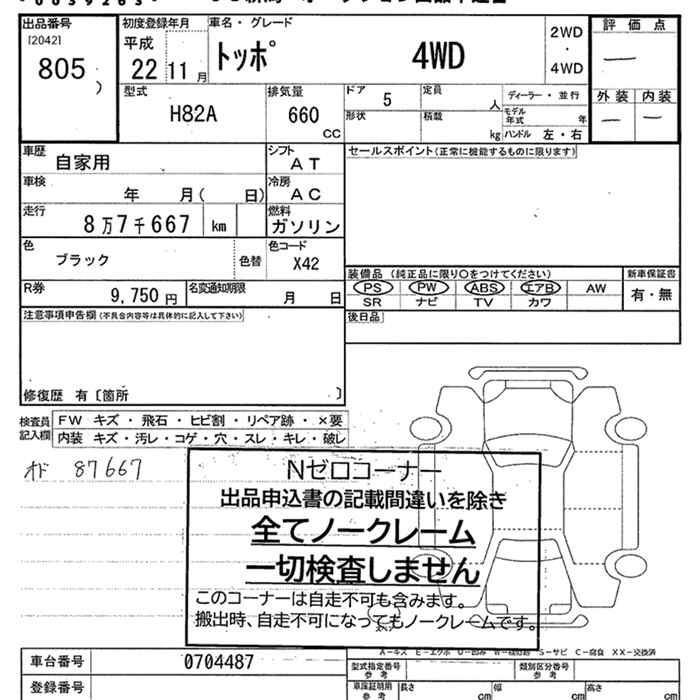 出品番号
[20421
805
)
初度登録年月
平成
22 11 月
車名・グレード
トッポ 4WD
2WD
・
4WD
評価点
—
外装 内装
— —
型式
H82A
排気量
660
CC
ドア 5
形状
定員 人
積載 kg
ディーラー・並行
モデル年式 年
ハンドル 左・右
車歴 自家用
シフト AT
車検 年 月( 日)
冷房 AC
走行 8万7千667 km
燃料 ガソリン
色 ブラック 色替
色コード X42
R券 9,750 円
名変通知期限 月 日
セールスポイント(正常に機能するものに限ります)
装備品 (純正品に限り○をつけてください)
PS PW ABS エアB AW
SR ナビ TV カワ
新車保証書
有・無
後日品
注意事項申告欄 (不具合内容等は具体的に記入して下さい)
修復歴 有〔箇所 〕
検査員記入欄
FW キズ・飛石・ヒビ割・リペア跡・×要
内装 キズ・汚レ・コゲ・穴・スレ・キレ・破レ
オド 87667
Nゼロコーナー
出品申込書の記載間違いを除き
全てノークレーム
一切検査しません
このコーナーは自走不可も含みます。
搬出時、自走不可になってもノークレームです。
A-キズ E-エクボ U-凹み S-サビ C-腐食 XX-交換済
車台番号 0704487
登録番号
型式指定番号 参考
類別区分番号 参考
車庫証明用 参考
長さ cm 幅 cm 高さ cm